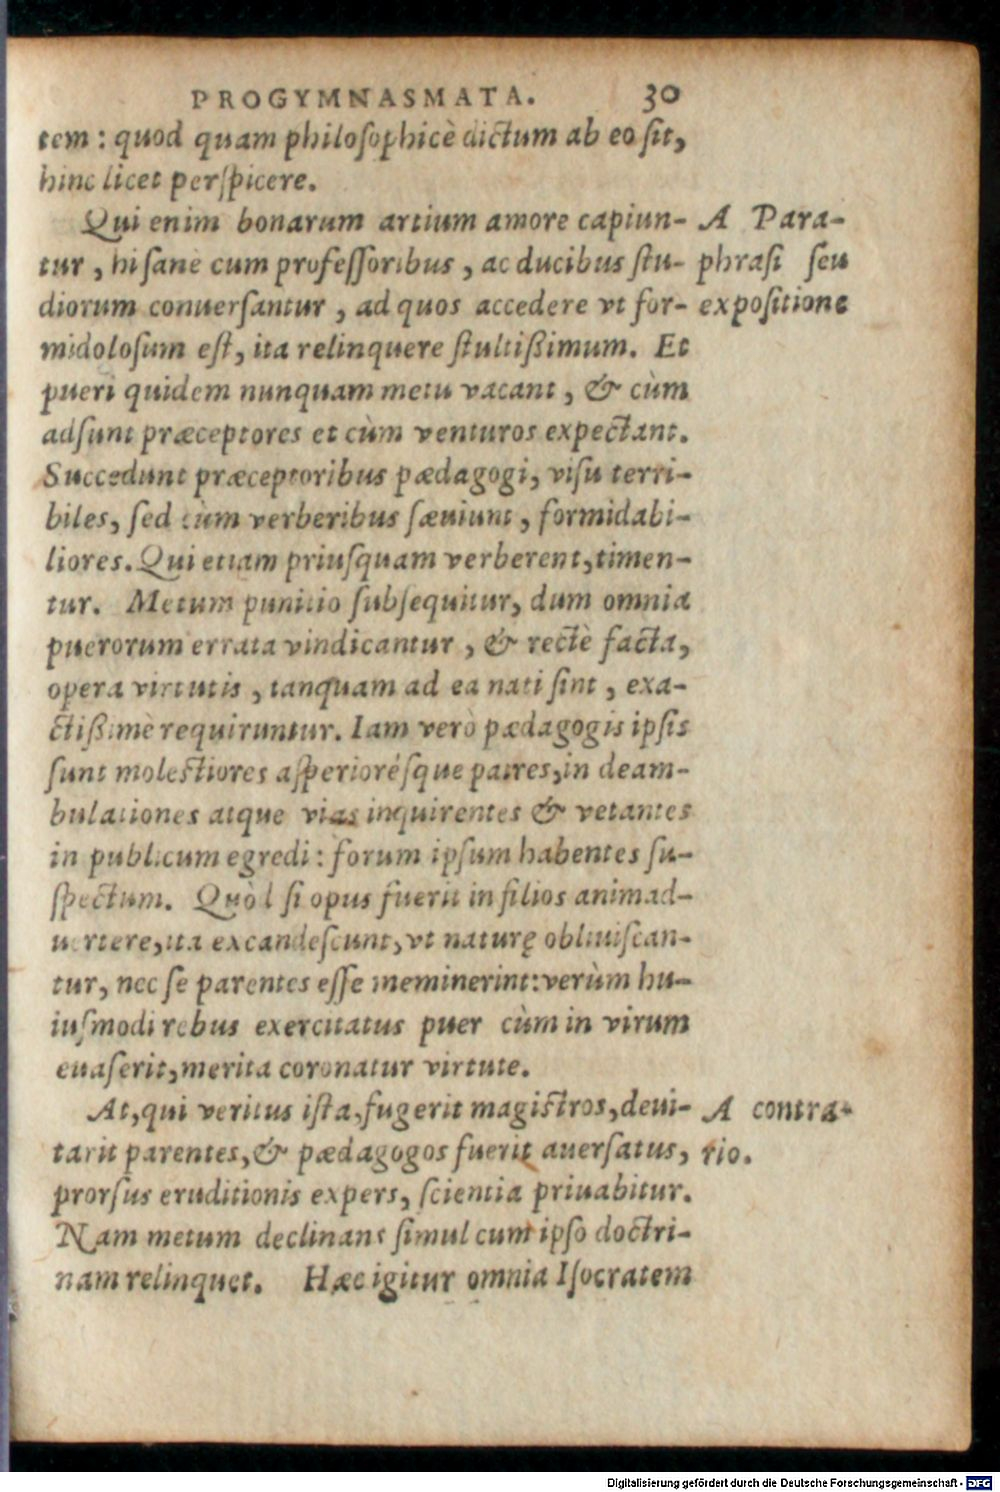 PROGYMNASMATA. 30
tem : quod quam philosophicè dictum ab eo sit,
hinc licet perspicere.
Qui enim bonarum artium amore capiun-
A Para-
tur, hi sanè cum professoribus, ac ducibus stu-
phrasi seu
diorum conuersantur, ad quos accedere vt for-
expositione
midolosum est, ita relinquere stultißimum. Et
pueri quidem nunquam metu vacant, & cùm
adsunt præceptores et cùm venturos expectant.
Succedunt præceptoribus pædagogi, visu terri-
biles, sed cùm verberibus sæuiunt, formidabi-
liores. Qui etiam priusquam verberent, timen-
tur. Metum punitio subsequitur, dum omnia
puerorum errata vindicantur, & rectè facta,
opera virtutis, tanquam ad ea nati sint, exa-
ctißimè requiruntur. Iam verò pædagogis ipsis
sunt molestiores asperiorésque patres, in deam-
bulationes atque vias inquirentes & vetantes
in publicum egredi : forum ipsum habentes su-
spectum. Quòd si opus fuerit in filios animad-
uertere, ita excandescunt, vt naturę obliuiscan-
tur, nec se parentes esse meminerint: verùm hu-
iusmodi rebus exercitatus puer cùm in virum
euaserit, merita coronatur virtute.
At, qui veritus ista, fugerit magistros, deui-
A contra-
tarit parentes, & pædagogos fuerit auersatus,
rio.
prorsus eruditionis expers, scientia priuabitur.
Nam metum declinans simul cum ipso doctri-
nam relinquet. Hæc igitur omnia Isocratem
Digitalisierung gefördert durch die Deutsche Forschungsgemeinschaft - DFG